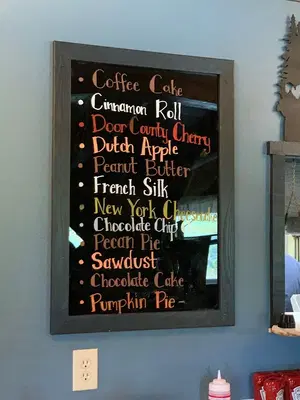 • Coffee Cake
• Cinnamon Roll
• Door County Cherry
• Dutch Apple
• Peanut Butter
• French Silk
• New York Cheesecake
• Chocolate Chip
• Pecan Pie
• Sawdust
• Chocolate Cake
• Pumpkin Pie -